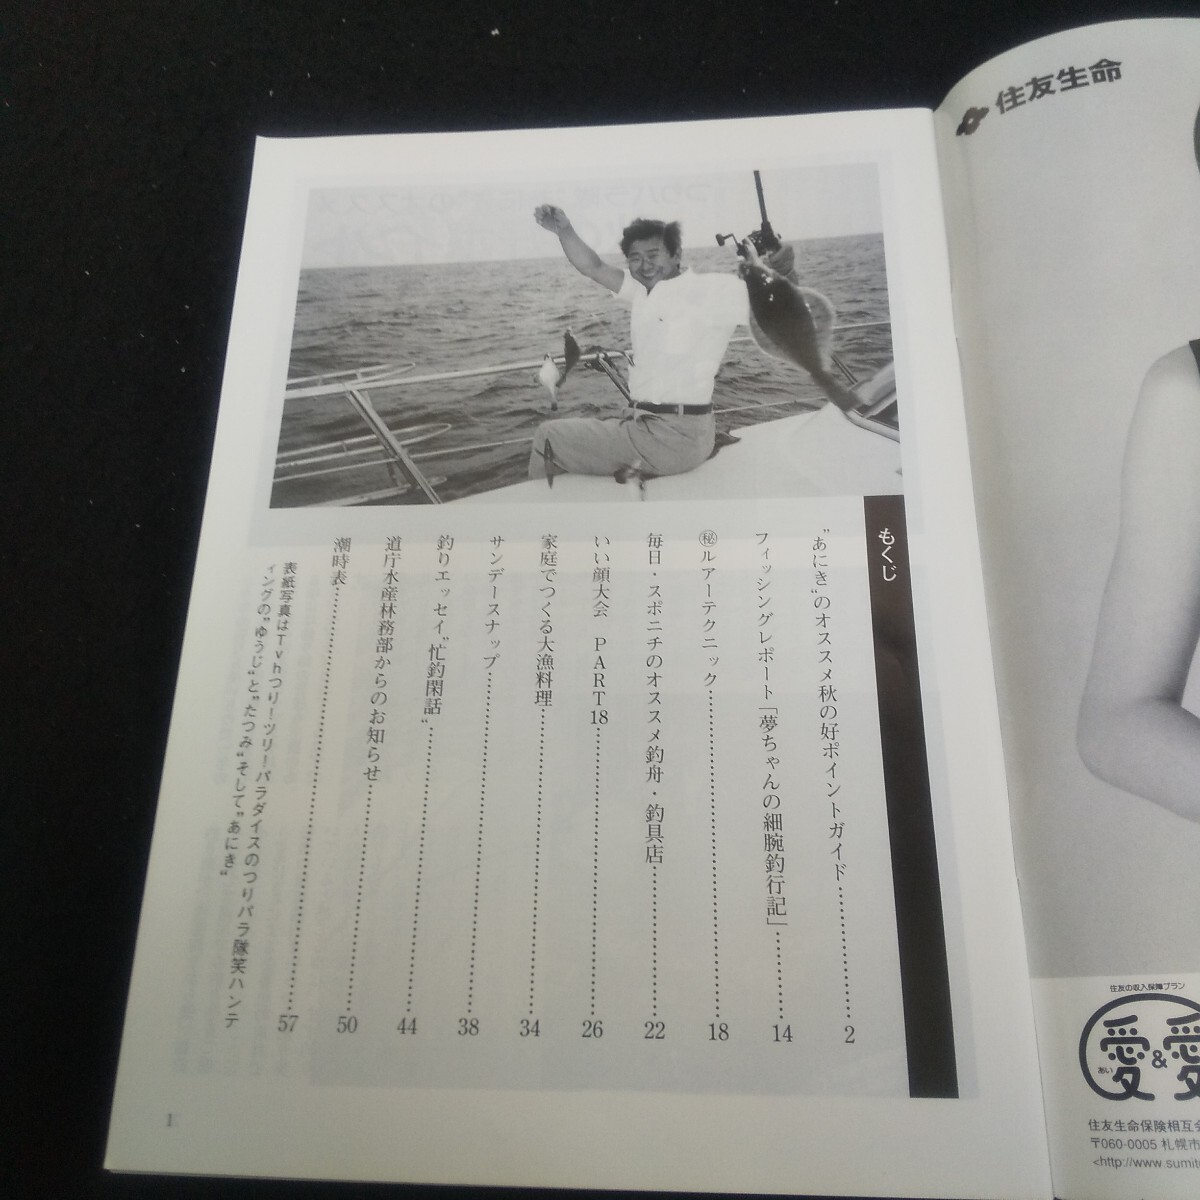 もくじ
“あにき”のオススメ秋の好ポイントガイド……………2
フィッシングレポート「夢ちゃんの細腕釣行記」………14
㊙ルアーテクニック……………………………18
毎日・スポニチのオススメ釣舟・釣具店……………22
いい顔大会　PART18……………………………26
家庭でつくる大漁料理……………………………34
サンデースナップ……………………………38
釣りエッセイ“忙釣閑話”……………………………44
道庁水産林務部からのお知らせ……………………50
潮時表……………………………57
表紙写真はTvhつり！ツリー！パラダイスのつりパラ隊笑ハンテ
ィングの“ゆうじ”と“たつみ”そして“あにき”
1
住友生命
住友の収入保障プラン
愛&愛
あい
住友生命保険相互会
〒060-0005 札幌市
<http://www.sumit